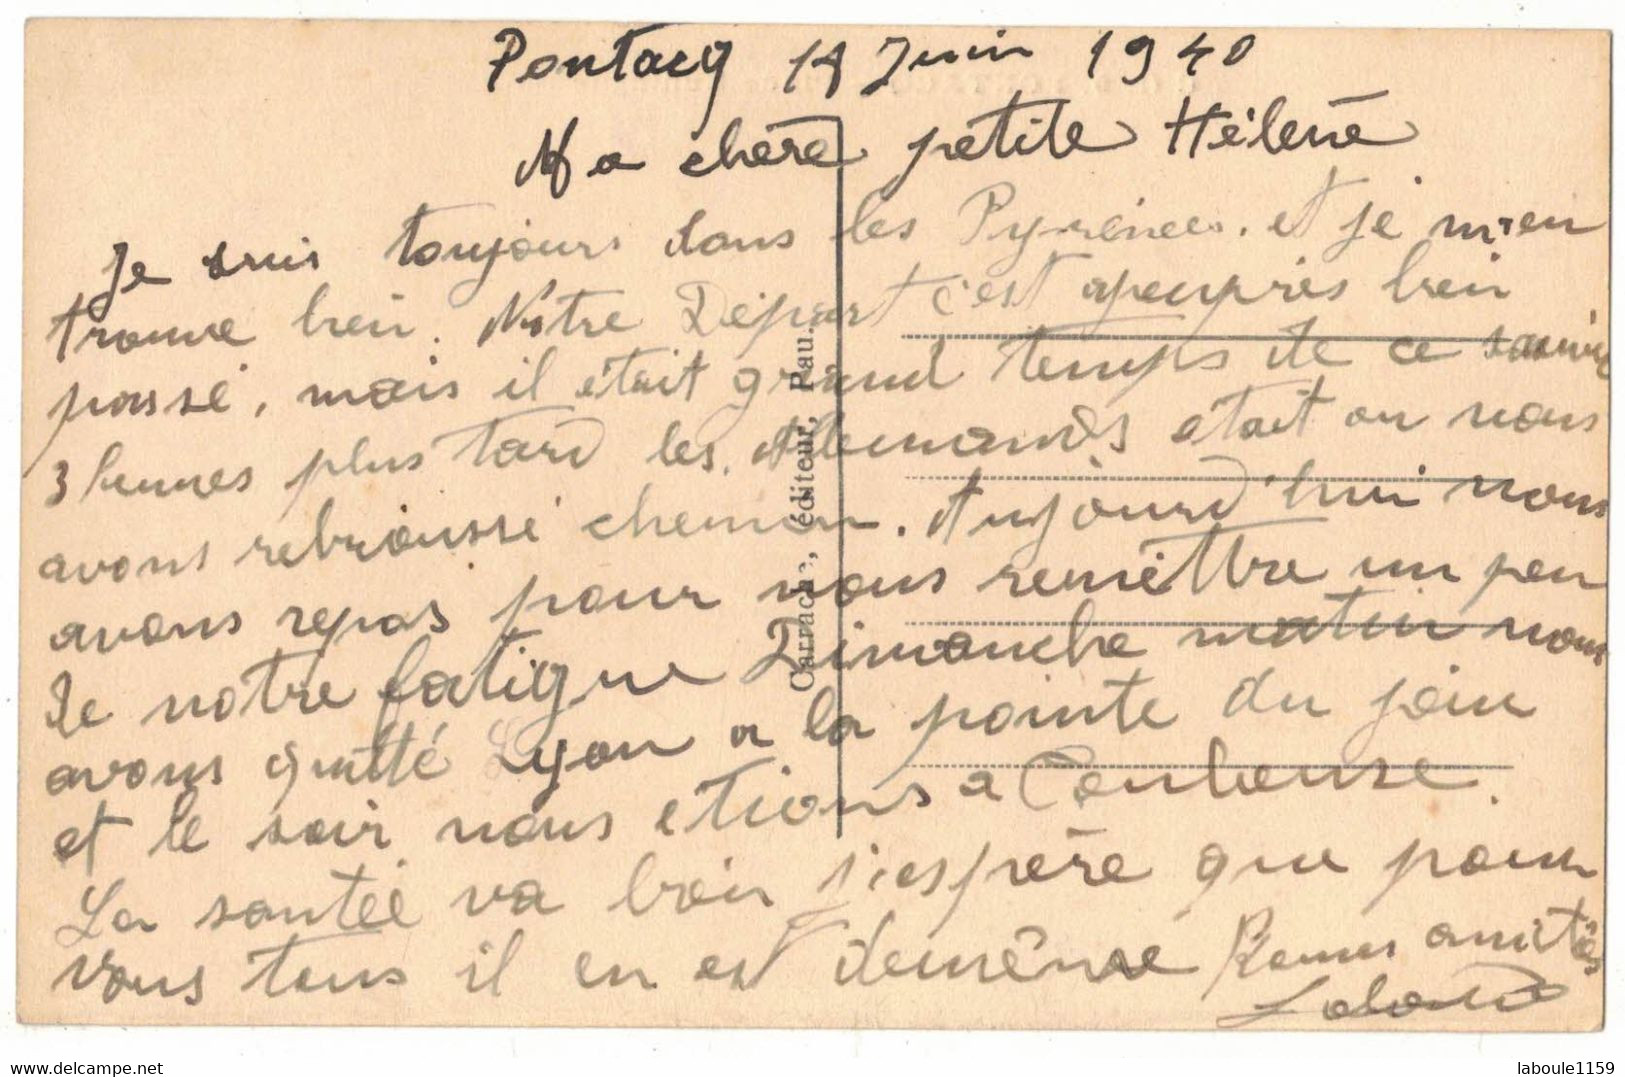 Pontacq 14 Juin 1940
Ma chère petite Hélène
Je suis toujours dans les Pyrénées. et je m'en
trouve bien. Notre Départ c'est apeuprès bien
passé, mais il était grand temps de ce sauver
3 heures plus tard les Allemands etait on nous
avons rebroussé chemin. Aujourd'hui nous
avons repos pour nous remettre un peu
de notre fatigue Dimanche matin nous
avons quitté Lyon a la pointe du jour
et le soir nous etions a Toulouse.
La santée va bien j'espère que pour
vous tous il en est demême Bonnes amitiés
Carrache, éditeur, Pau.
www.delcampe.net
laboule1159